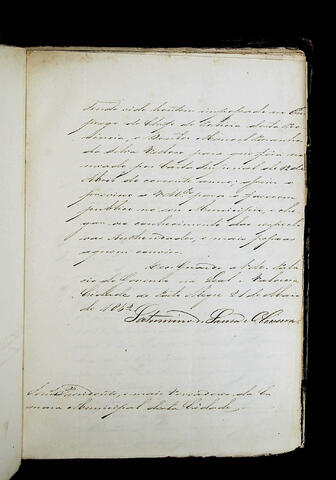 Tendo sido hontem empossado no Em
prego de Chefe de Policia desta Pro
vincia, o Doutor Manoel Paranhos
da Silva Vellozo para que fora no
meado por Carta Imperial de 12 de
Abril do corrente anno; assim o
previno a V.Mces. para o fazerem
publico no seu Municipio, e che
gar ao conhecimento das respecti
vas Authoridades, e mais pessoas
a quem convier.
Deos Guarde a V.Mces. Pala
cio do Governo na Leal e Valorosa
Cidade de Porto Alegre 21 de Maio
de 1842.
Saturnino de Souza e Oliveira
Snrs. Presidente, e mais Vereadores da Ca
mara Municipal desta Cidade,